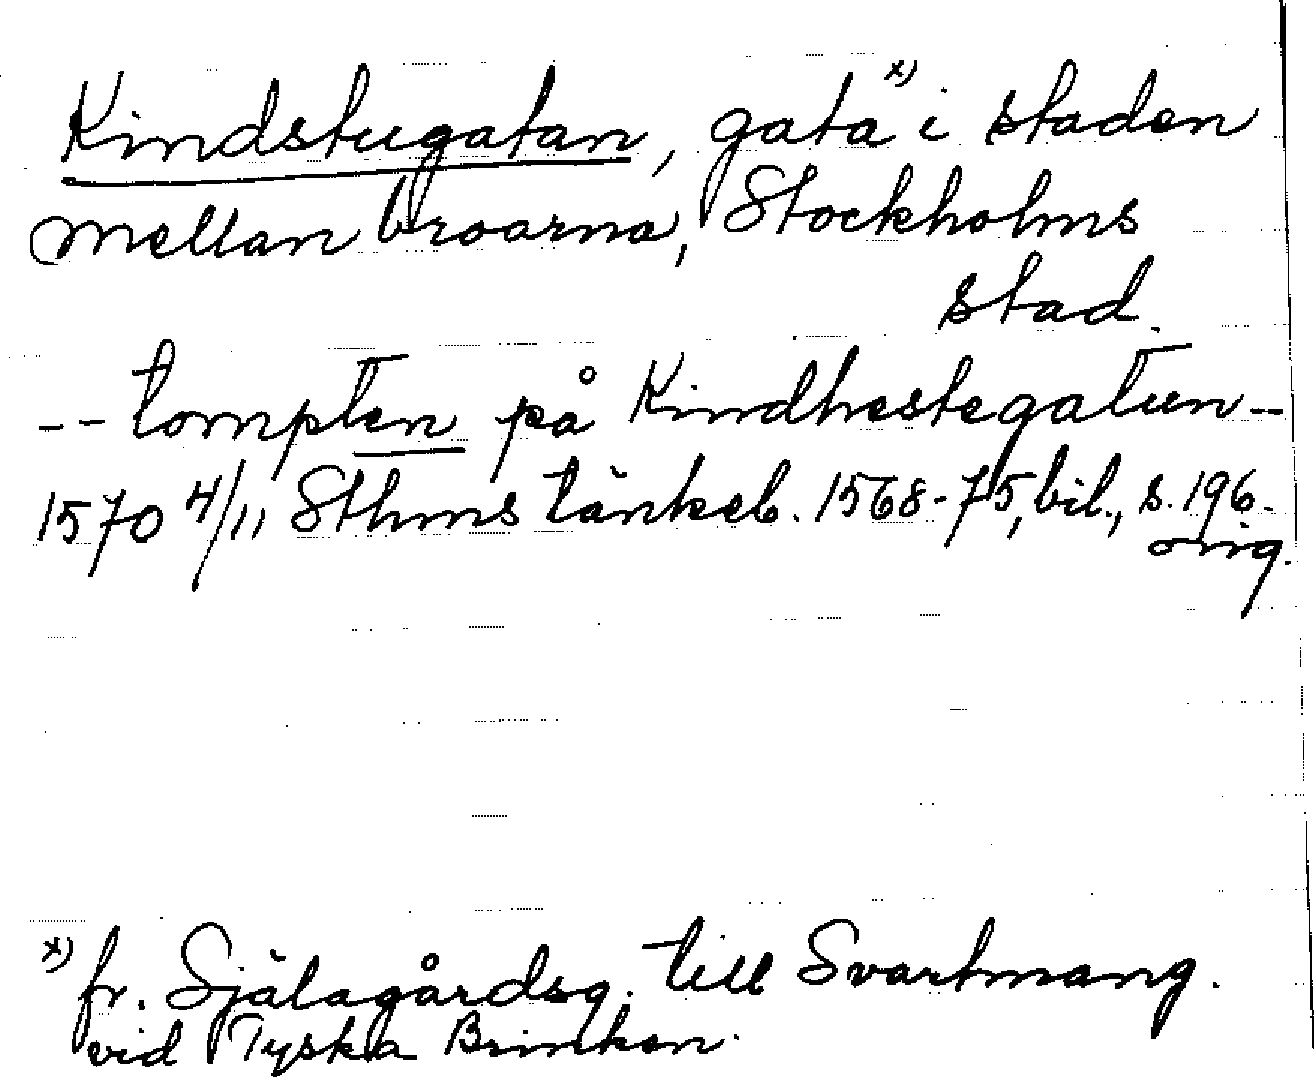 Kindstugatan, gata x) i staden
mellan broarna, Stockholms
stad.
-- tompten på Kindhestegatun --
1570 4/11 Sthms tänkeb. 1568-75, bil., s. 196.
orig.
x) fr. Själagårdsg. till Svartmang.
vid Tyska Brinken.